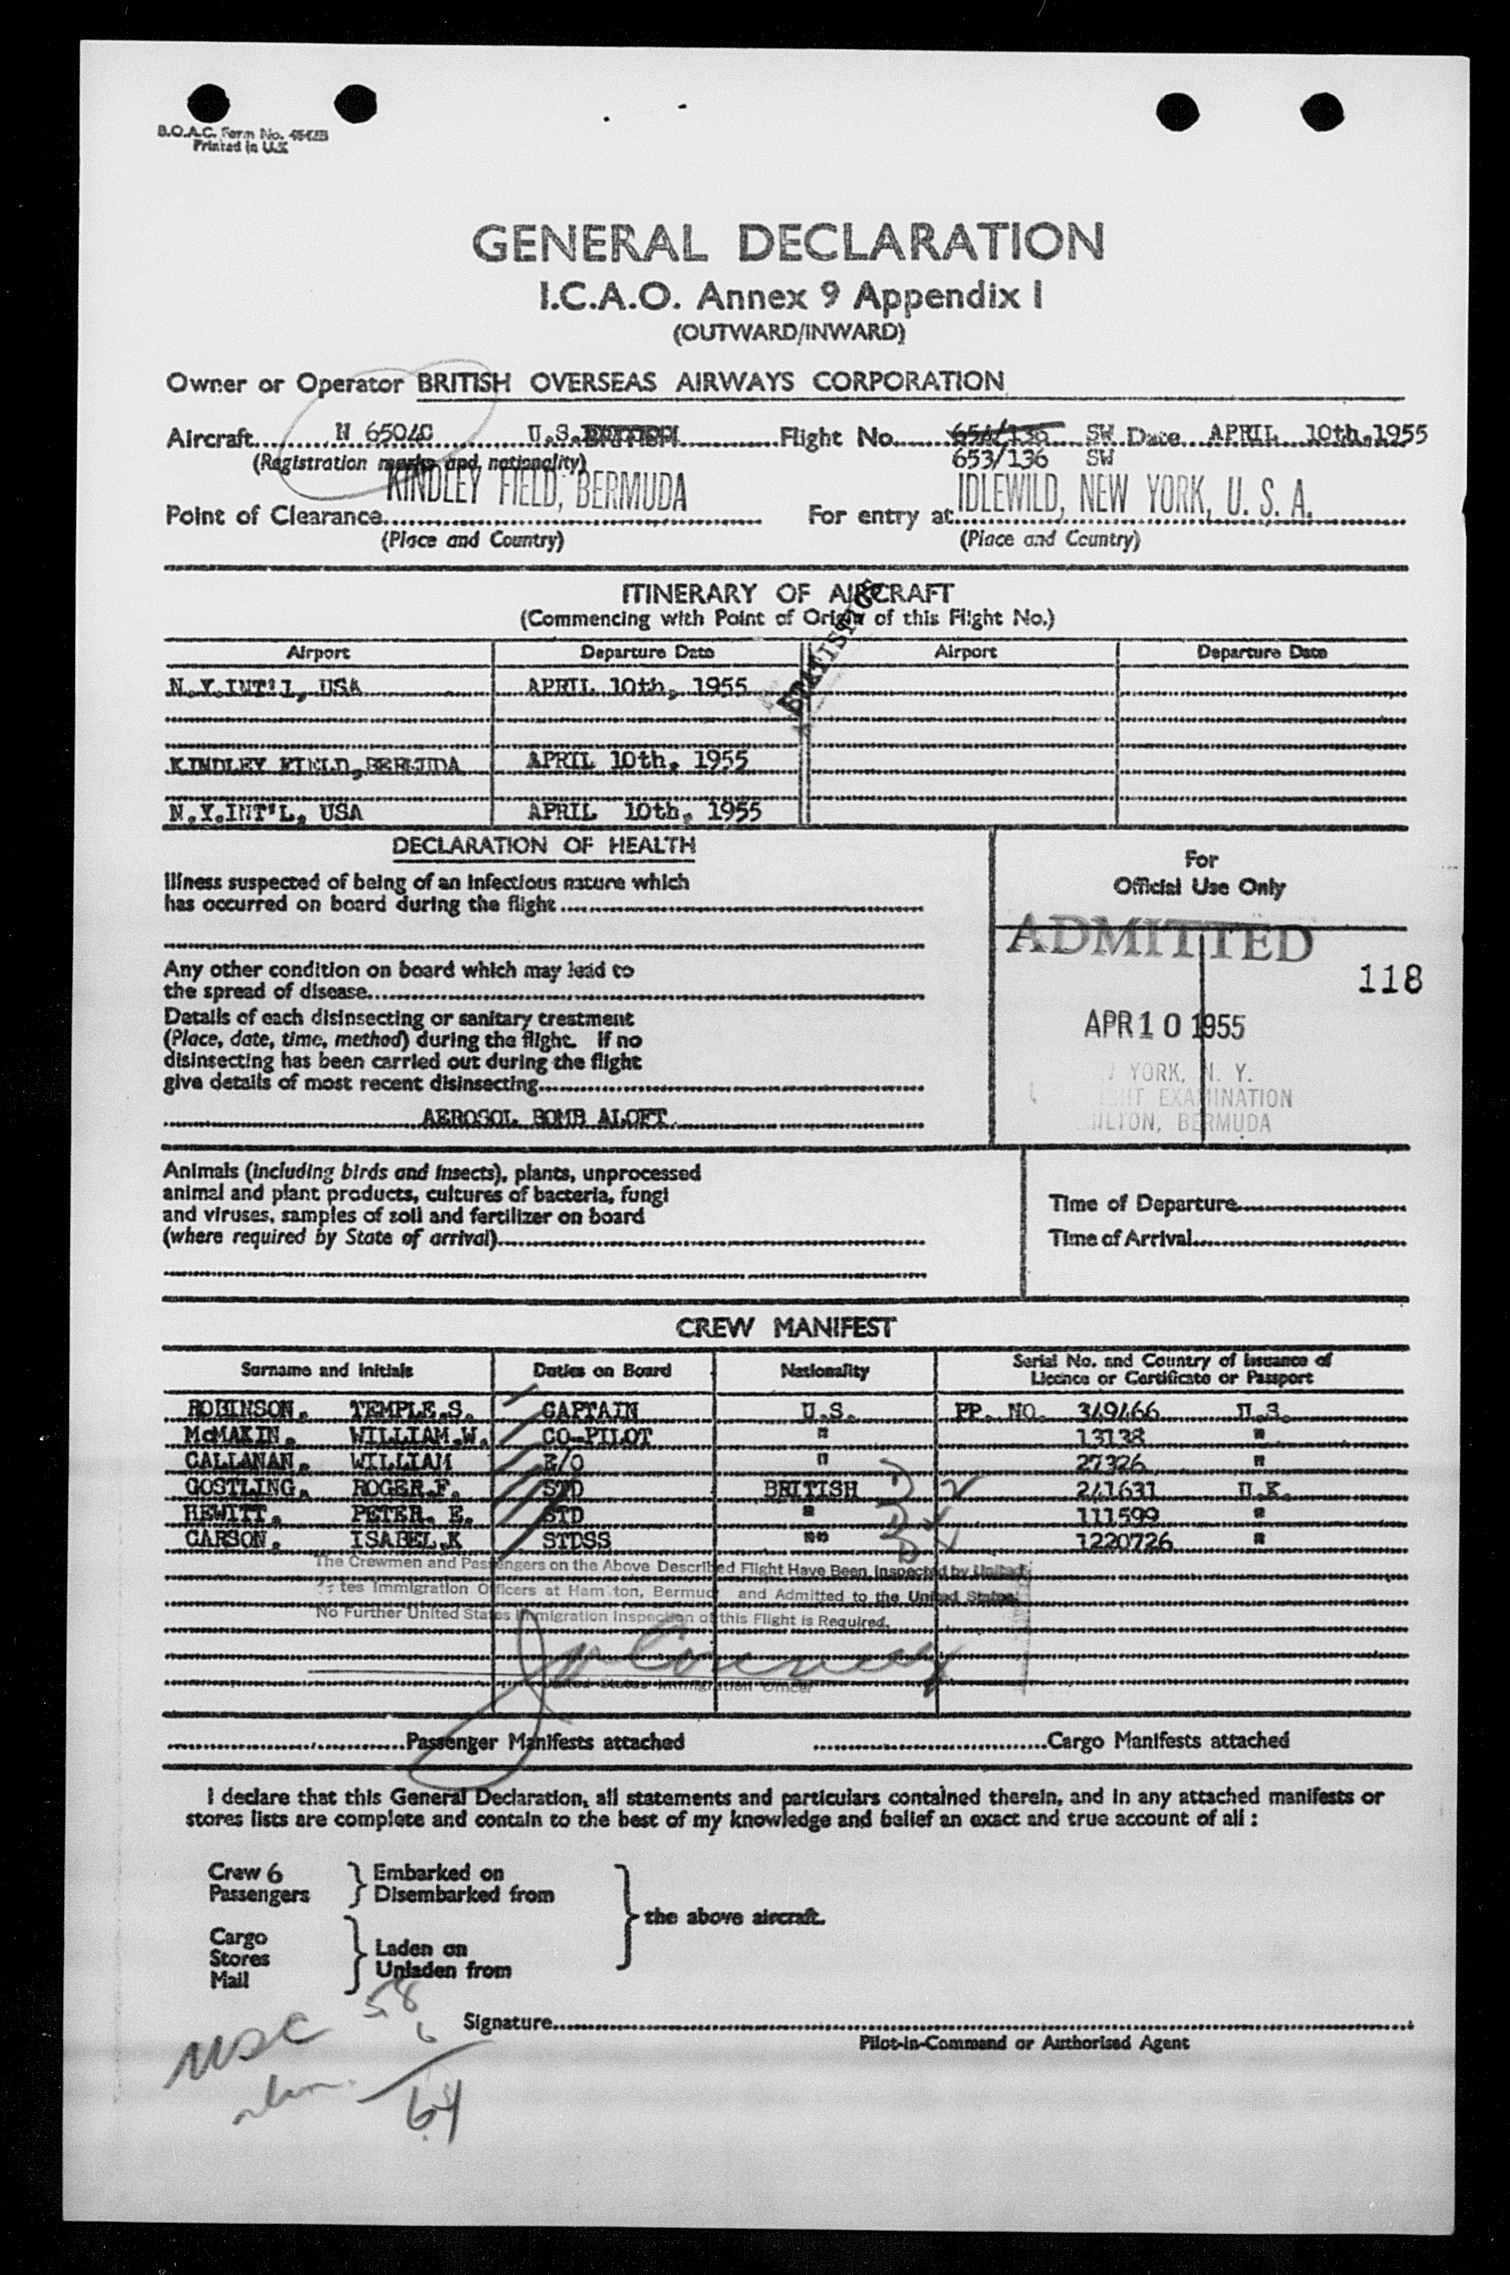 B.O.A.C. Form No.
Printed in U.K
GENERAL DECLARATION
I.C.A.O. Annex 9 Appendix I
(OUTWARD/INWARD)
Owner or Operator BRITISH OVERSEAS AIRWAYS CORPORATION
Aircraft N 6504C U.S. Flight No. 654/136 SW Date APRIL 10th.1955
(Registration marks and nationality) 653/136 SW
Point of Clearance KINDLEY FIELD, BERMUDA For entry at IDLEWILD, NEW YORK, U. S. A.
(Place and Country) (Place and Country)
ITINERARY OF AIRCRAFT
(Commencing with Point of Origin of this Flight No.)
STATISTICS
Airport Departure Date Airport Departure Date
N.Y.INT'L, USA APRIL 10th, 1955
KINDLEY FIELD,BERMUDA APRIL 10th, 1955
N.Y.INT'L, USA APRIL 10th, 1955
DECLARATION OF HEALTH
Illness suspected of being of an infectious nature which
has occurred on board during the flight
Any other condition on board which may lead to
the spread of disease
Details of each disinsecting or sanitary treatment
(Place, date, time, method) during the flight. If no
disinsecting has been carried out during the flight
give details of most recent disinsecting
AEROSOL BOMB ALOFT.
For
Official Use Only
ADMITTED
118
APR 10 1955
YORK, N. Y.
EXAMINATION
BERMUDA
Animals (including birds and insects), plants, unprocessed
animal and plant products, cultures of bacteria, fungi
and viruses, samples of soil and fertilizer on board
(where required by State of arrival)
Time of Departure
Time of Arrival
CREW MANIFEST
Surname and Initials Duties on Board Nationality Serial No. and Country of Issuance of
Licence or Certificate or Passport
ROBINSON. TEMPLE.S. CAPTAIN U.S. PP. NO. 349466 U.S.
McMAKIN. WILLIAM.W. CO-PILOT " 13138 "
CALLANAN. WILLIAM E/O " 27326 "
GOSTLING. ROGER.F. STD BRITISH 241631 U.K.
HEWITT. PETER. E. STD " 111599 "
CARSON. ISABEL.K STDSS "" 1220726 "
The Crewmen and Passengers on the Above Described Flight Have Been Inspected by United
States Immigration Officers at Hamilton, Bermuda and Admitted to the United States.
No Further United States Immigration Inspection of this Flight is Required.
United States Immigration Officer
Passenger Manifests attached Cargo Manifests attached
I declare that this General Declaration, all statements and particulars contained therein, and in any attached manifests or
stores lists are complete and contain to the best of my knowledge and belief an exact and true account of all :
Crew 6
Passengers
Embarked on
Disembarked from
Cargo
Stores
Mail
Laden on
Unladen from
the above aircraft.
58
6
64
Signature
Pilot-in-Command or Authorised Agent